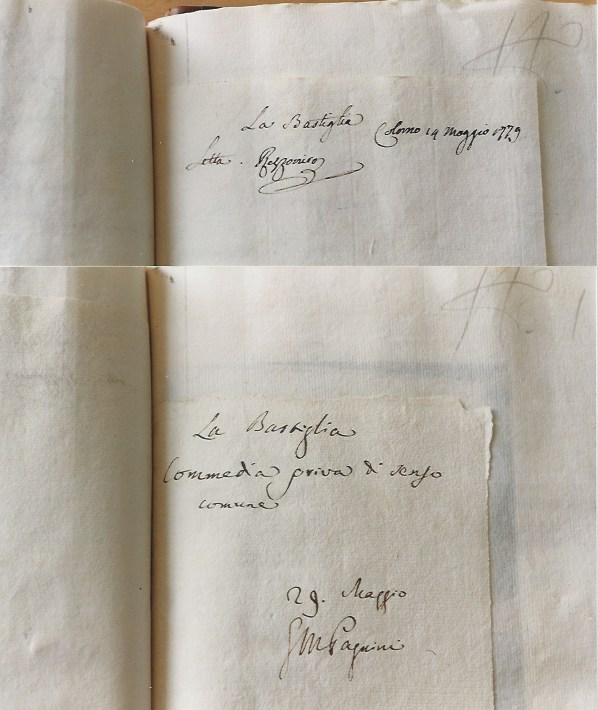 140
La Bastiglia
Colorno 14 Maggio 1779
Letta. Rezzonico
La Bastiglia
Commedia priva di senso
comune
29. Maggio
GMPagnini